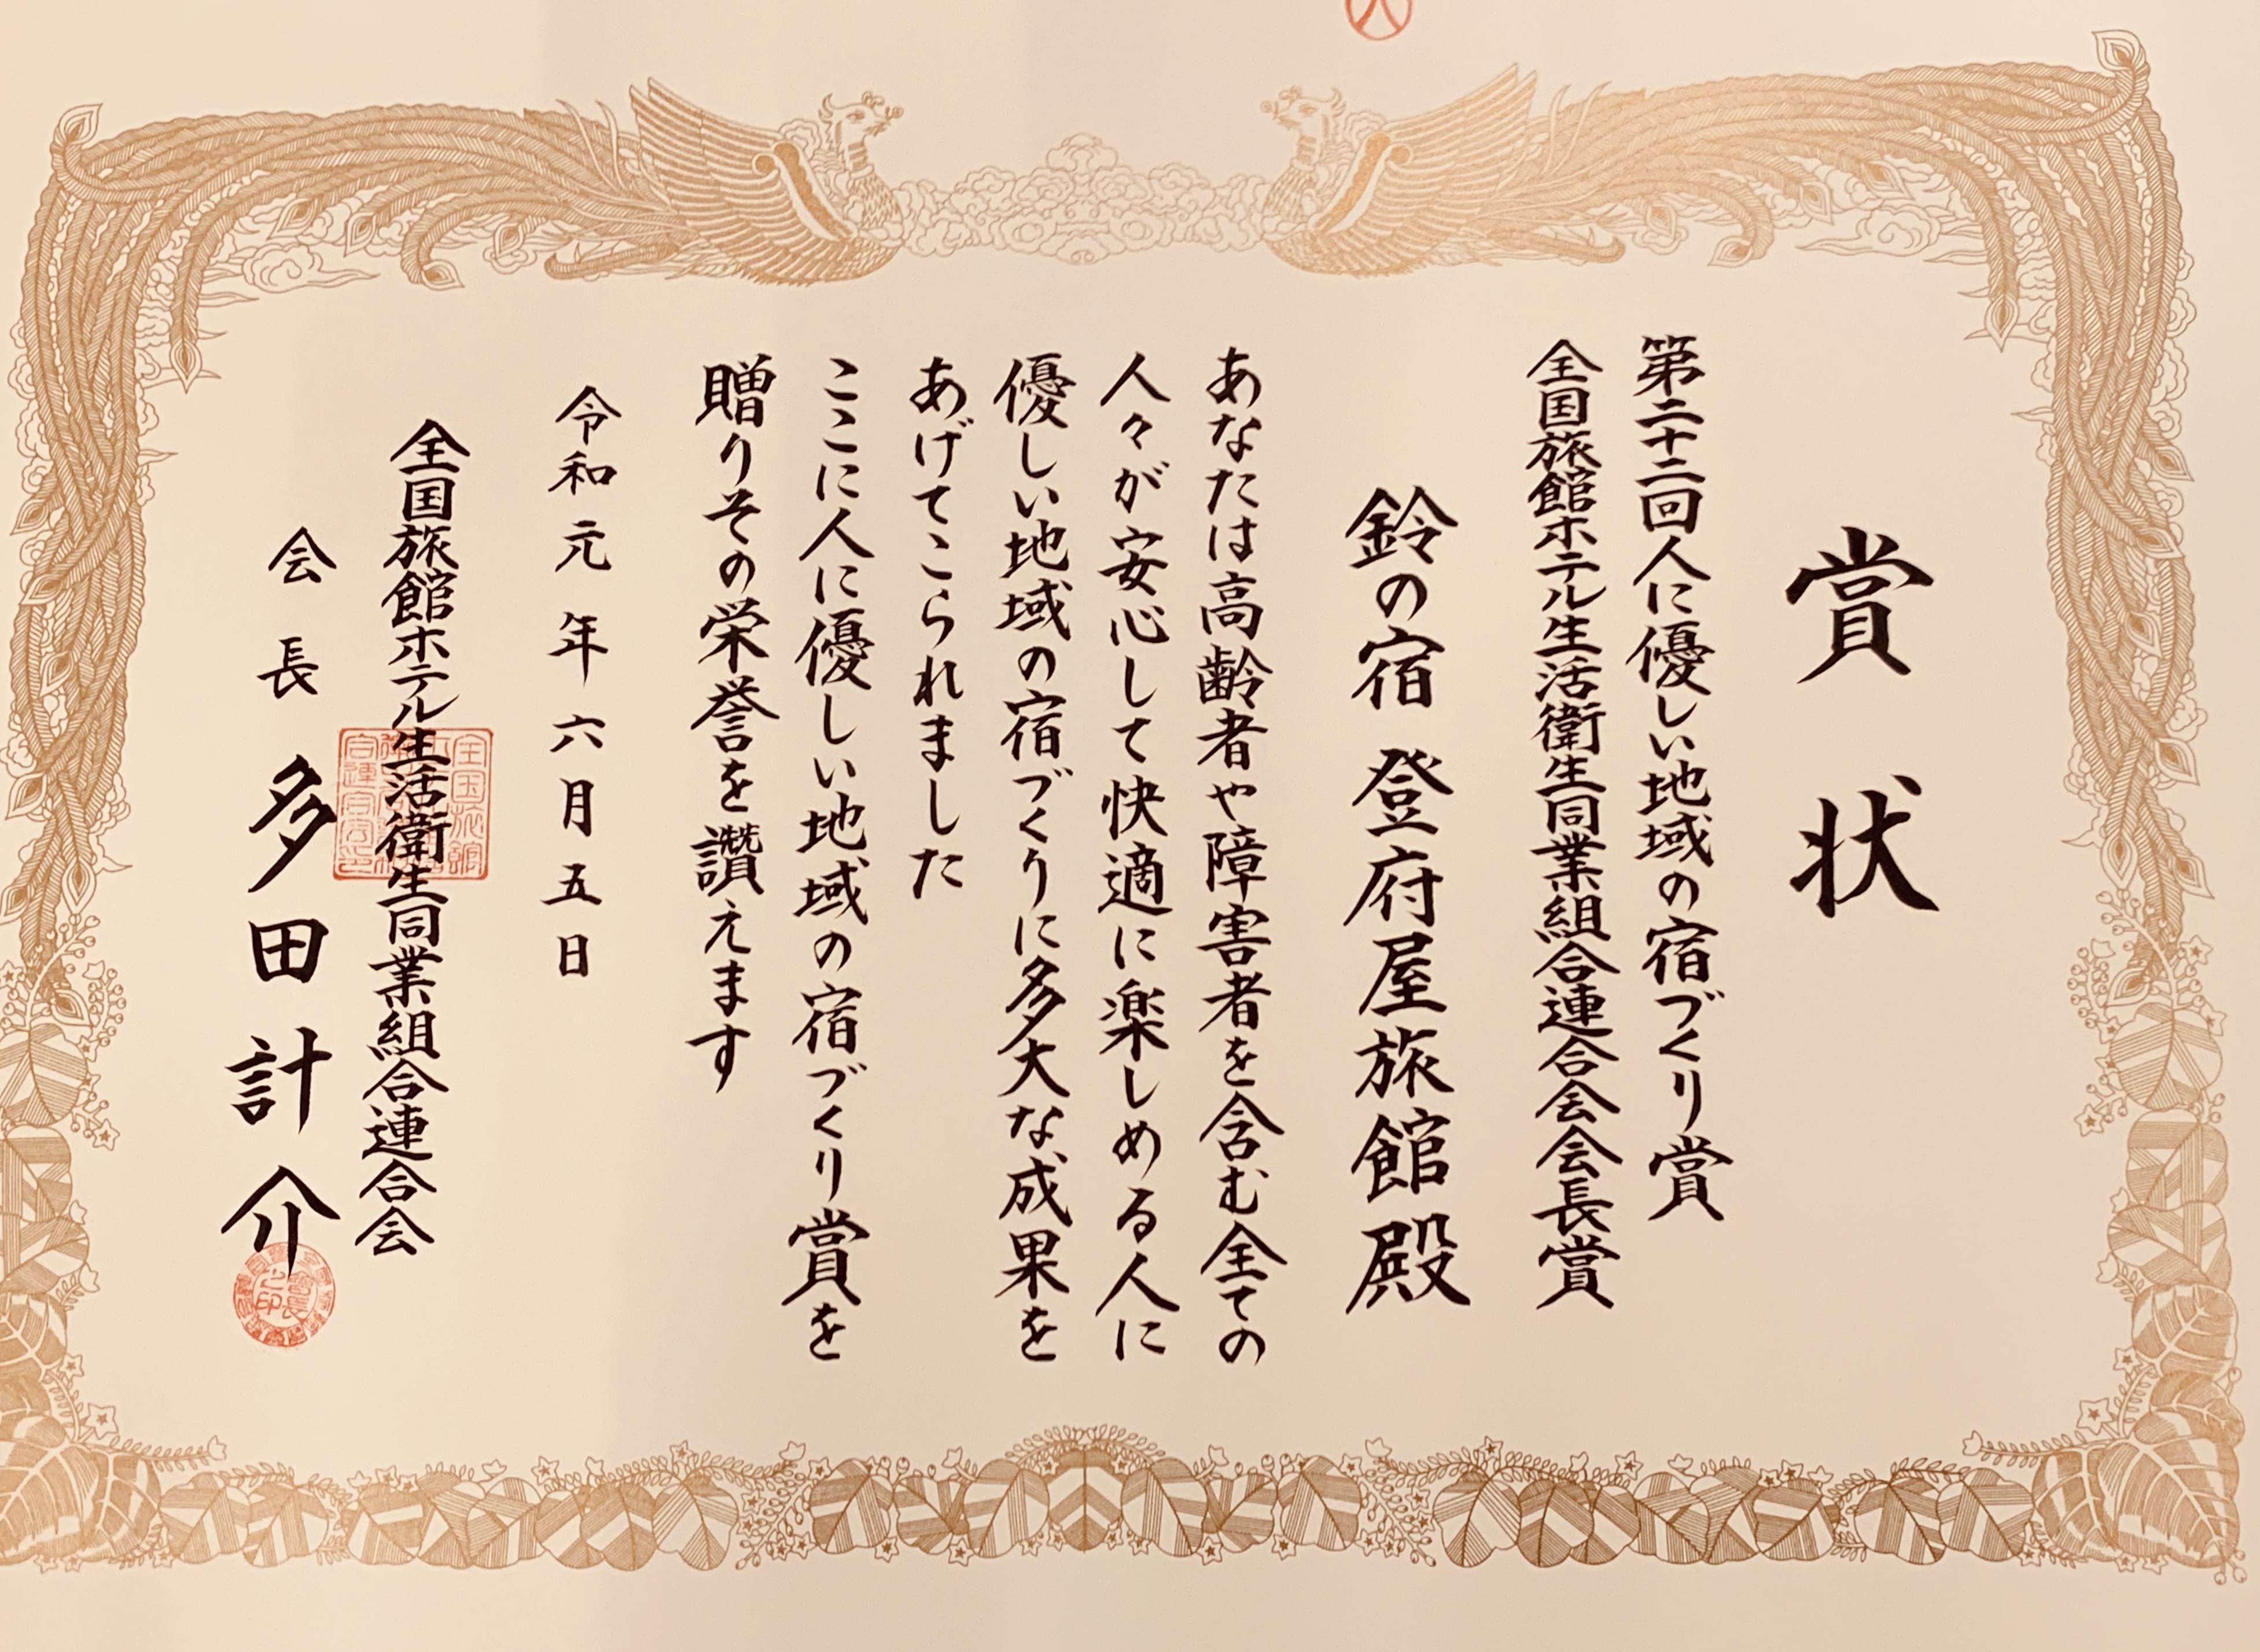 賞状
第二十二回人に優しい地域の宿づくり賞
全国旅館ホテル生活衛生同業組合連合会会長賞
鈴の宿 登府屋旅館 殿
あなたは高齢者や障害者を含む全ての
人々が安心して快適に楽しめる人に
優しい地域の宿づくりに多大な成果を
あげてこられました
ここに人に優しい地域の宿づくり賞を
贈りその栄誉を讃えます
令和元年六月五日
全国旅館ホテル生活衛生同業組合連合会
会長 多田計介